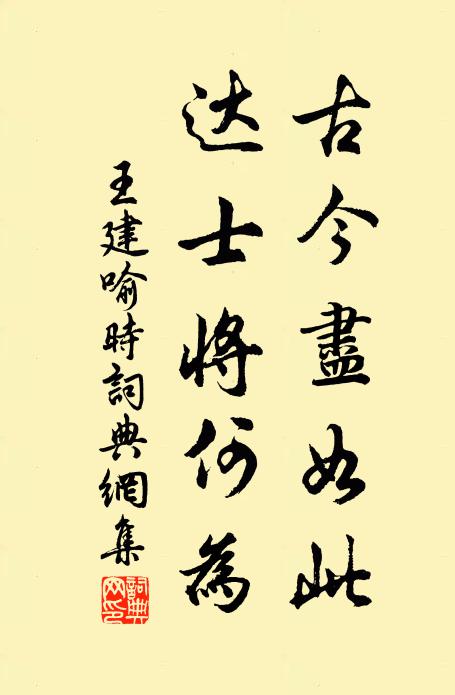 古今盡如此
达士将何為
王建喻時詞典網集
詞典網印